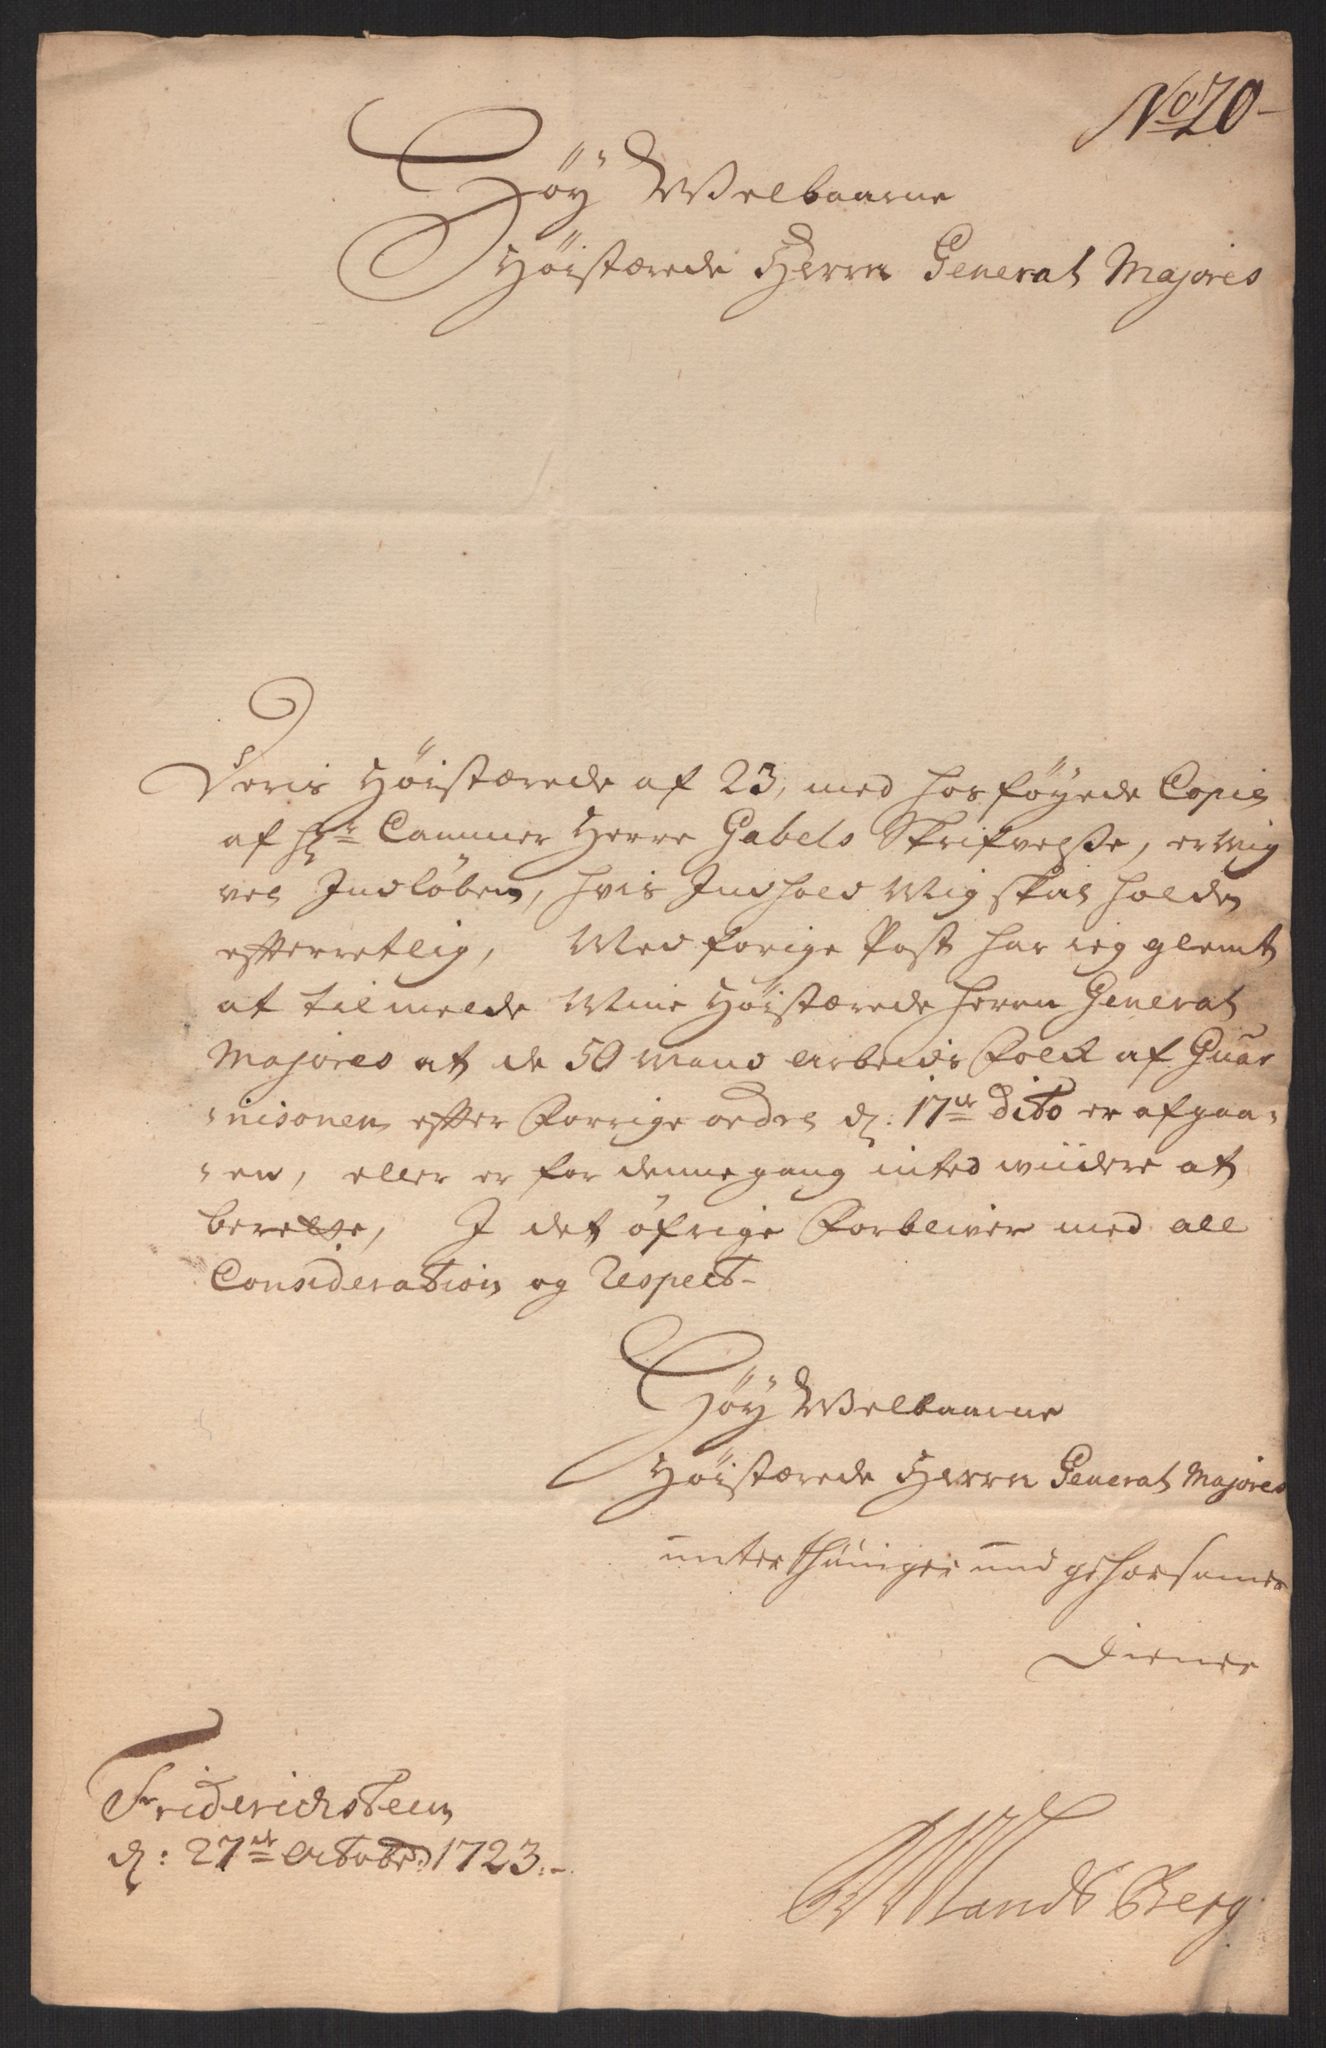 No 20
Höy Welbaarne
Höistærede Herrn General Majores
Deris Höistærede af 23, med hosföyede Copie
af Hr Cammer Herre Gabels Skrifvelsse, er Mig
vel Indlöben, hvis Indhold Mig skal holde
efterretlig, Med forige Post har ieg glemt
at tilmelde Min Höistærede Herrn General
Majores at de 50 Mand arbeids Folck af Guar
=nisonen efter Forrige ordre d: 17de Dito er afgaa=
=en, eller er for denne gang inted widere at
berette, I det öfrige Forbliver med all
Consideration og Respect-
Höy Welbaarne
Höistærede Herrn General Majores
unterthäniger und gehorsamer
Diener
Friderichsteen
d: 27de octobr: 1723.-
Mands Berg